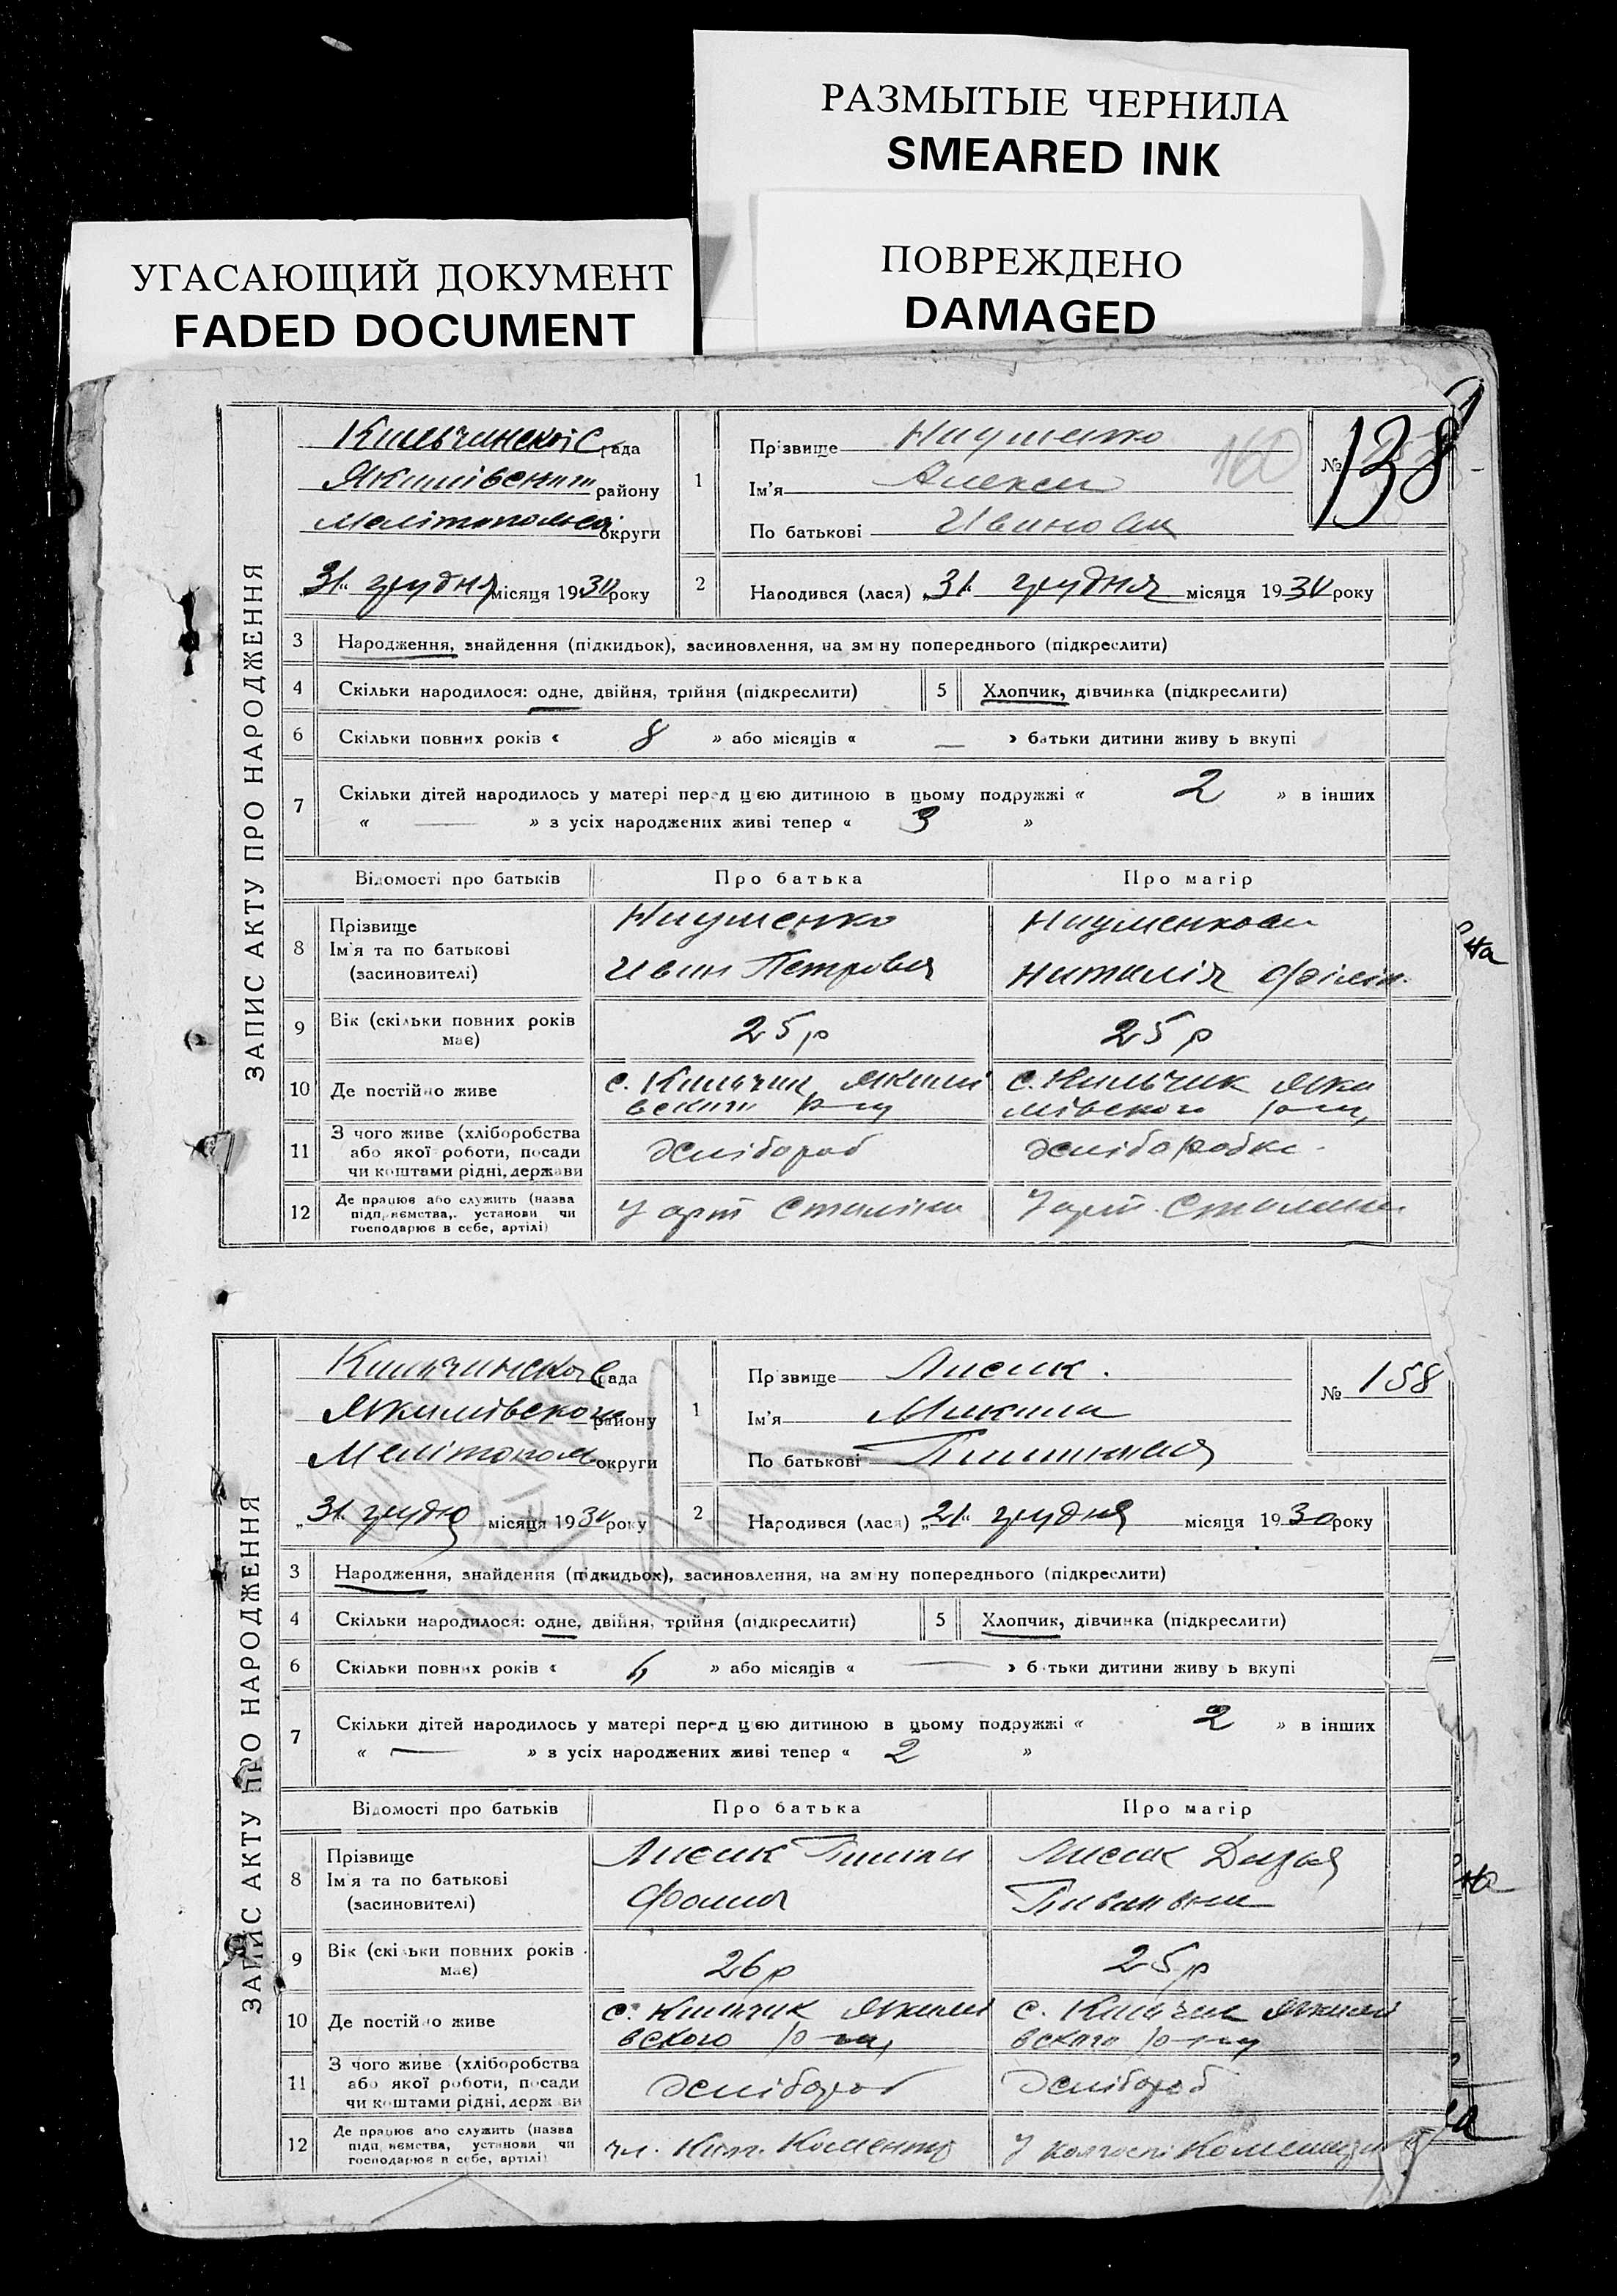 РАЗМЫТЫЕ ЧЕРНИЛА
SMEARED INK
ПОВРЕЖДЕНО
DAMAGED
УГАСАЮЩИЙ ДОКУМЕНТ
FADED DOCUMENT
ЗАПИС АКТУ ПРО НАРОДЖЕННЯ
рада
району
округи
31 грудня місяця 19 року
1
Прізвище Науменко
Ім'я Алексей
По батькові
160
№ 138
2
Народився (лася) „31“ грудня місяця 19 року
3 Народження, знайдення (підкидьок), засиновлення, на зміну попереднього (підкреслити)
4 Скільки народилося: одне, двійня, трійня (підкреслити) 5 Хлопчик, дівчинка (підкреслити)
6 Скільки повних років « 8 » або місяців « — » батьки дитини живуть вкупі
7 Скільки дітей народилось у матері перед цією дитиною в цьому подружжі « 2 » в інших
« — » з усіх народжених живі тепер « 3 »
Відомості про батьків Про батька Про матір
8 Прізвище
Ім'я та по батькові
(засновителі)
Науменко
Иван Петрович
Науменкова
Наталія Філіп.
9 Вік (скільки повних років має) 25 р 25 р
10 Де постійно живе
с. Кильчик Якимі
вского р-ну
с. Кильчик Яки
мівского р-ну
11 З чого живе (хліборобства
або якої роботи, посади
чи коштами рідні, держави
хлібороб
хліборобка
12 Де працює або служить (назва
підприємства, установи чи
господарює в себе, артілі)
У арт Сталіна
У арт. Сталина
ЗАПИС АКТУ ПРО НАРОДЖЕННЯ
рада
Якимівского району
Мелітопол округи
„31 грудня місяця 19 року
1
Прізвище Лисак.
Ім'я Микита
По батькові
№ 158
2
Народився (лася) „21“ грудня місяця 1930 року
3 Народження, знайдення (підкидьок), засиновлення, на зміну попереднього (підкреслити)
4 Скільки народилося: одне, двійня, трійня (підкреслити) 5 Хлопчик, дівчинка (підкреслити)
6 Скільки повних років « » або місяців « — » батьки дитини живуть вкупі
7 Скільки дітей народилось у матері перед цією дитиною в цьому подружжі « 2 » в інших
« — » з усіх народжених живі тепер « 2 »
Відомості про батьків Про батька Про матір
8 Прізвище
Ім'я та по батькові
(засиновителі)
Лисак
Фомич
Лисак
9 Вік (скільки повних років має) 26 р 25 р
10 Де постійно живе
с. Кильчик Якимі
вского р-ну
с. Кильчик Якимі
вского р-ну
11 З чого живе (хліборобства
або якої роботи, посади
чи коштами рідні, держави
хлібороб
хлібороб
12 Де працює або служить (назва
підприємства, установи чи
господарює в себе, артілі)
чл.
У колгоспі